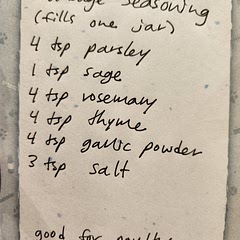 seasoning
(fills one jar)
4 tsp parsley
1 tsp sage
4 tsp rosemary
4 tsp thyme
4 tsp garlic powder
3 tsp salt
good for